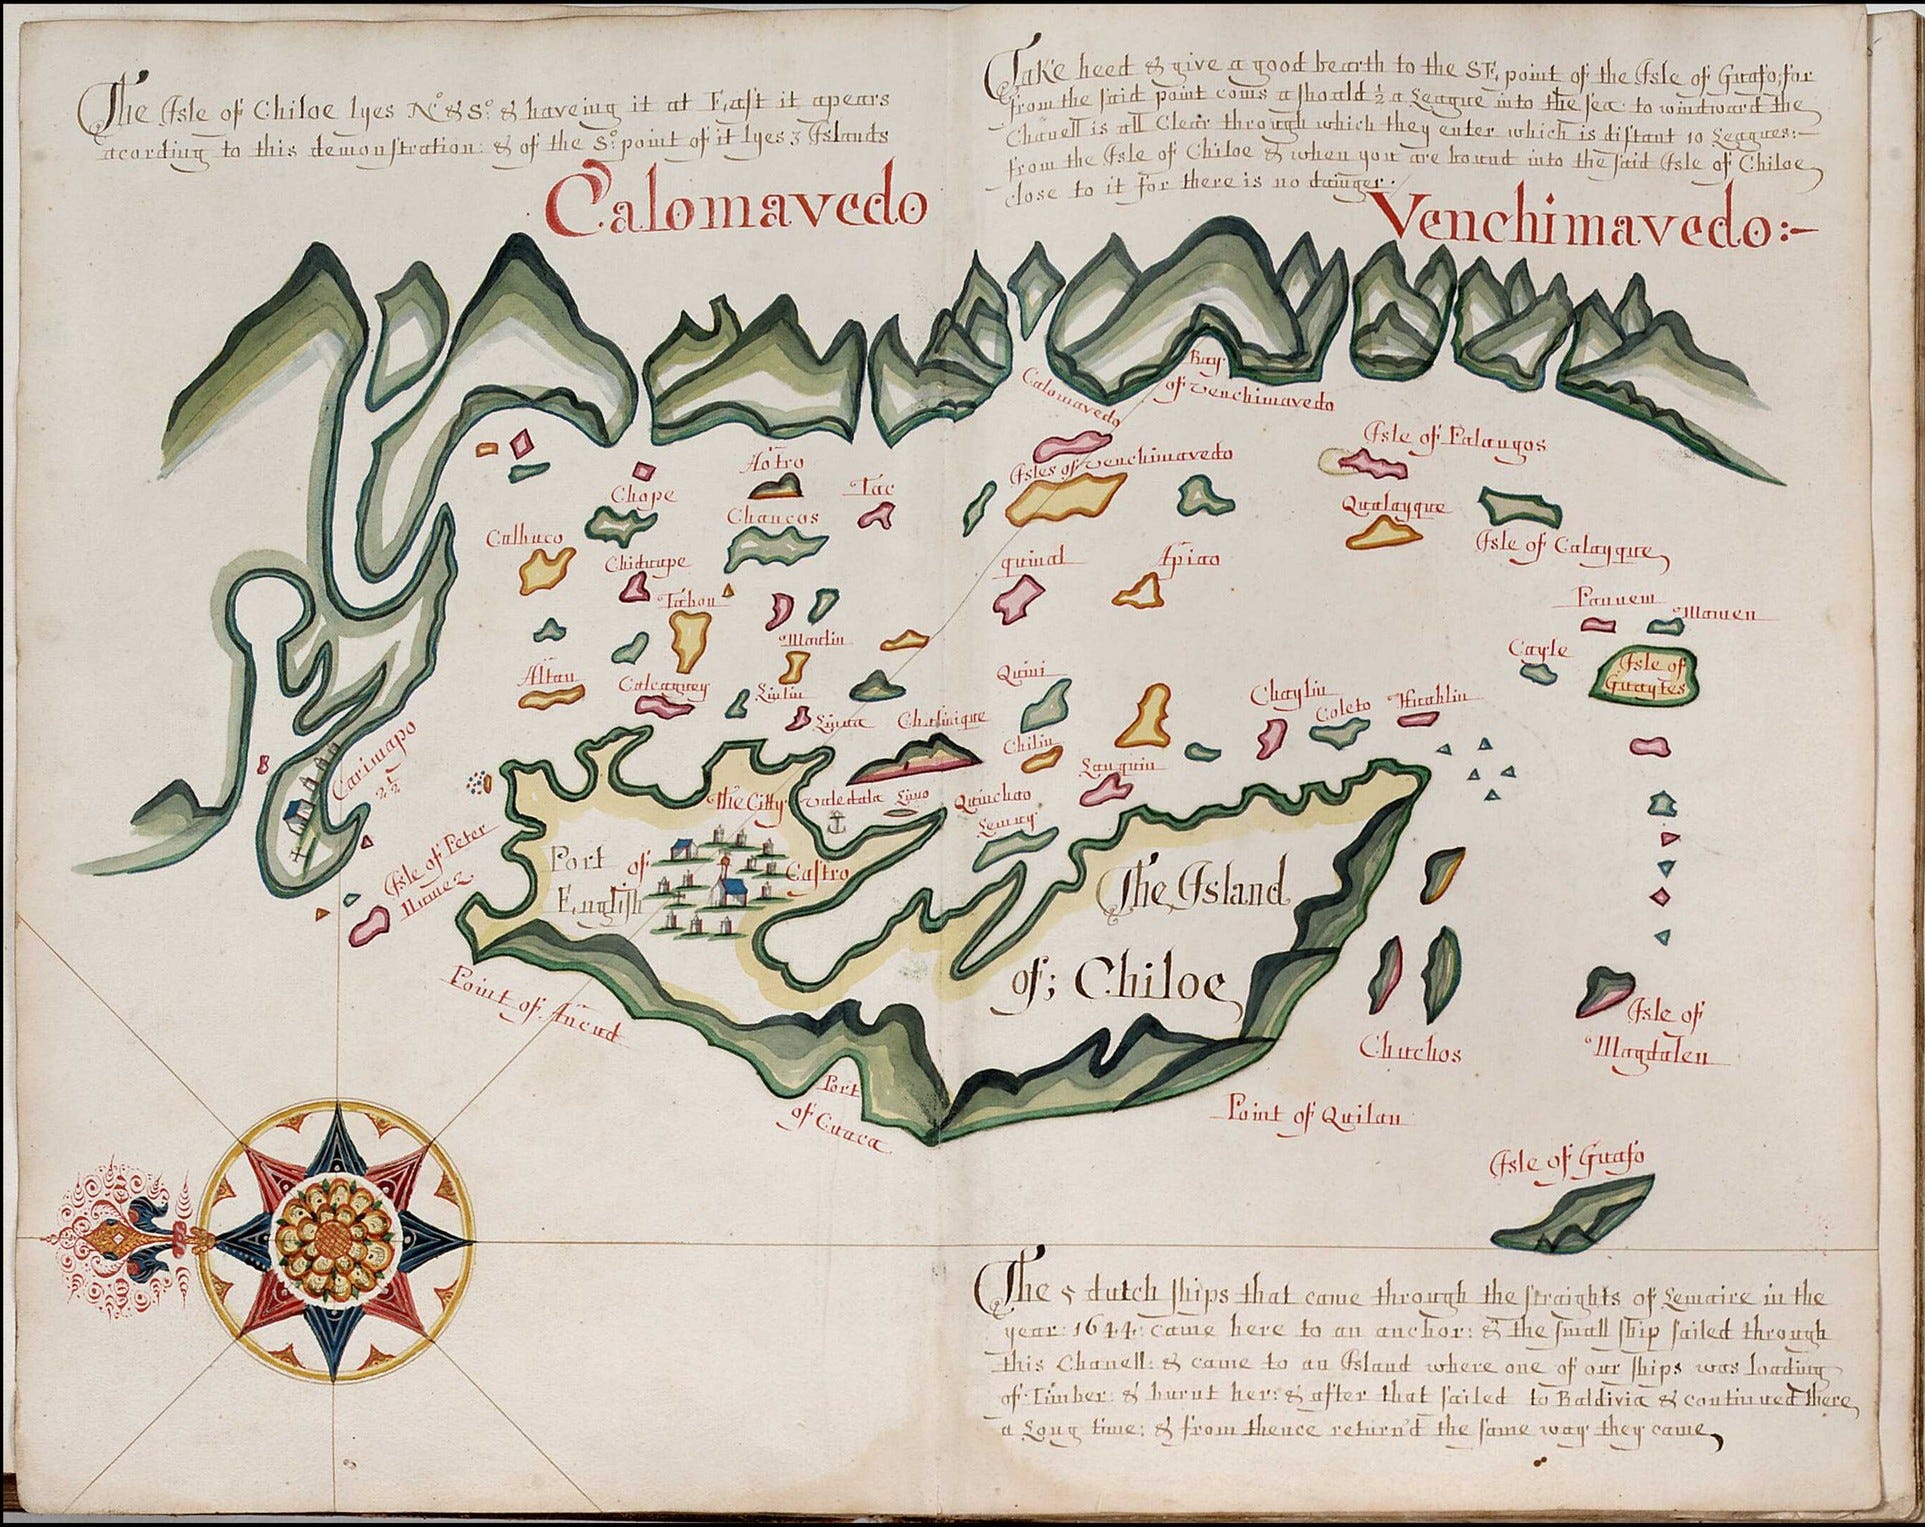 The Isle of Chiloe lyes No & So: & haveing it at East it apears
acording to this demonstration: & of the So: point of it lyes 3 Islands
Take heed & give a good bearth to the SE, point of the Isle of Guafo, for
from the said point coms a shoald ½ a League into the sea: to windward the
Chanell is all Clear through which they enter which is distant 10 Leagues:
from the Isle of Chiloe & when you are bound into the said Isle of Chiloe
close to it for there is no dainger.
Calomavedo
Venchimavedo:-
Bay
of Venchimavedo
Calomavedo
Isle of Palangos
Aotro
Isles of Venchimavedo
Chope
Tac
Qualayque
Chaucos
Calbuco
Isle of Calayque
quinal
Apiao
Tabon
Pauuem
Mauen
Martin
Cayle
Isle of
Guaytes
Altau
Quini
Liulin
Chaylin
Coleto
Carimapo
2½
Chilin
Lauquin
The Citty
Quinchao
Lemuy
Isle of Peter
Nunez
Port of
English
Castro
The Island
of; Chiloe
Point of Ancud
Isle of
Magdalen
Chuchos
Port
of Cuaca
Point of Quilan
Isle of Guafo
The 5 dutch ships that came through the straights of Lemaire in the
year: 1644: came here to an anchor: & the small ship sailed through
this Chanell: & came to an Island where one of our ships was loading
of Timber: & burnt her: & after that sailed to Baldivia & continued there
a Long time: & from thence return'd the same way they came,